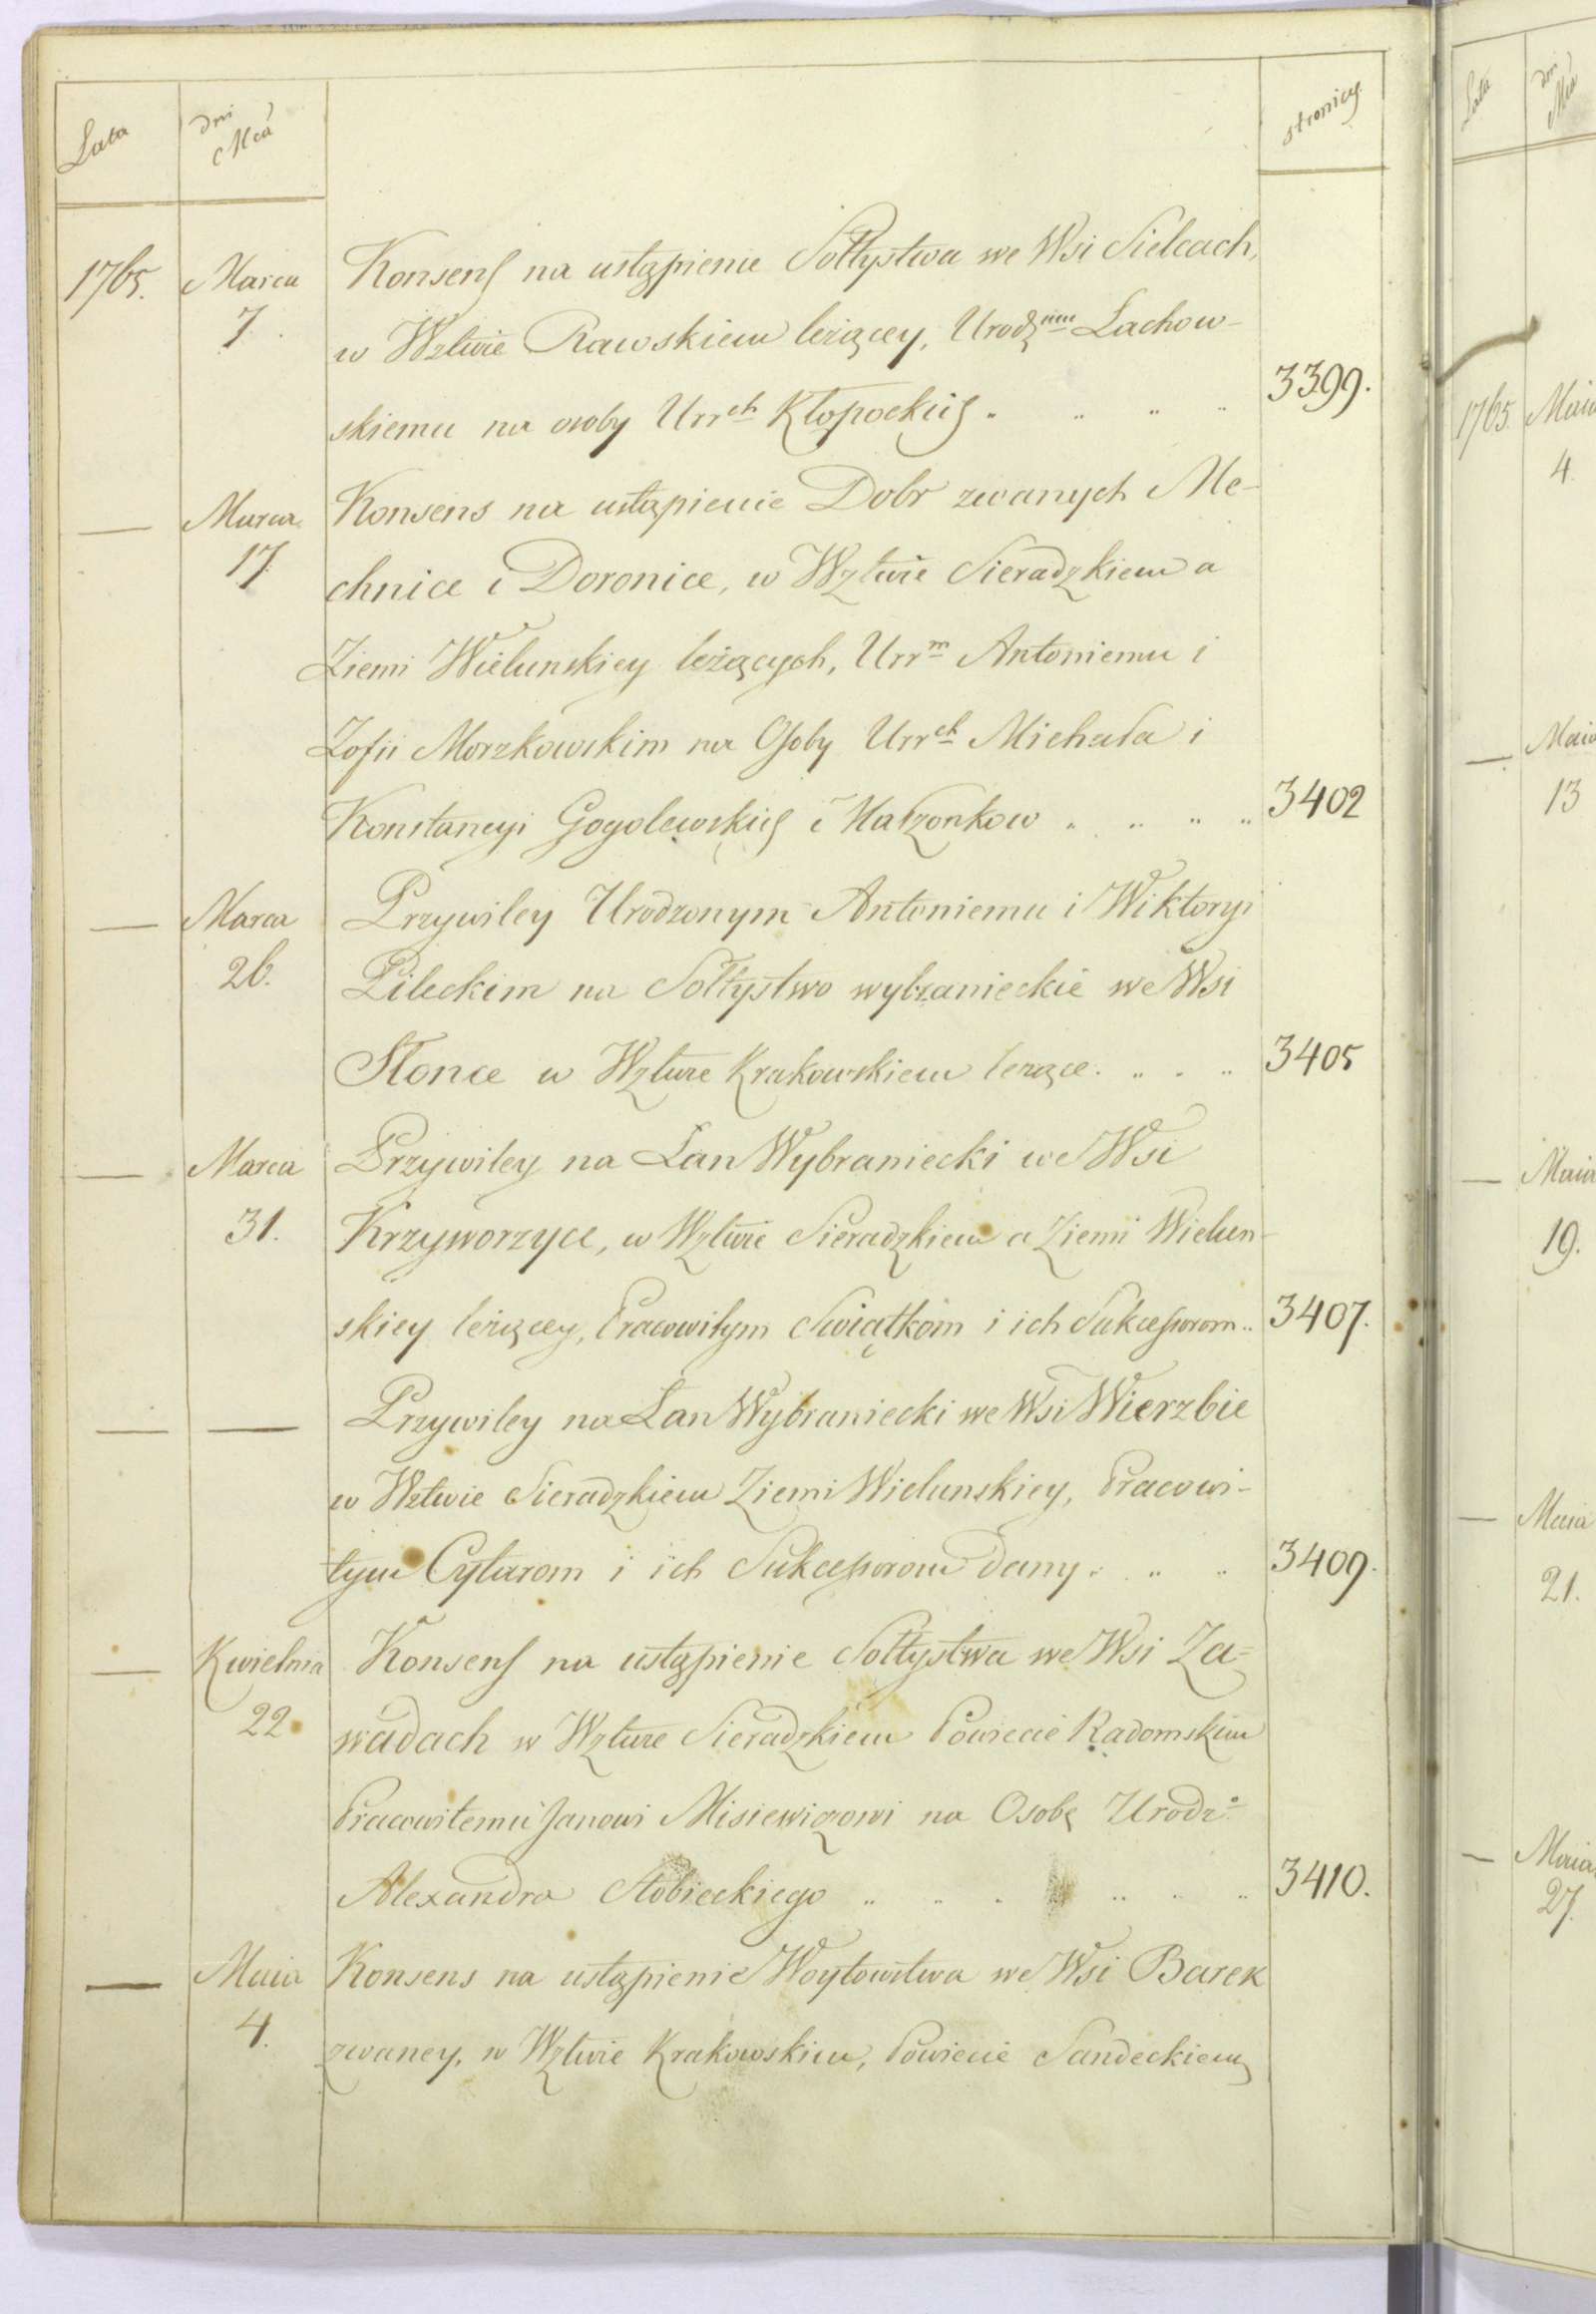 Lata dni Mca stronicy
1765. Marca 7. Konsens na ustąpienie Sołtystwa we Wsi Sielcach,
w Wztwie Rawskiem leżącey, Urodz<sup>mu</sup> Lachow-
skiemu na osoby Urr<sup>ch</sup> Kłopockich 3399.
— Marca 17. Konsens na ustąpienie Dobr zwanych Me-
chnice i Doronice, w Wztwie Sieradzkiem a
Ziemi Wielunskiey leżących, Urr<sup>m</sup> Antoniemu i
Zofii Morzkowskim na Osoby Urr<sup>ch</sup> Michała i
Konstancyi Gogolewskich Małżonkow 3402
— Marca 26. Przywiley Urodzonym Antoniemu i Wiktoryi
Pileckim na Sołtystwo wybranieckie we Wsi
Słonce w Wztwie Krakowskiem leżące. 3405
— Marca 31. Przywiley na Łan Wybraniecki we Wsi
Krzyworzyce, w Wztwie Sieradzkiem a Ziemi Wielun-
skiey leżącey, Pracowitym Swiątkom i ich Sukcessorom 3407.
— — Przywiley na Łan Wybraniecki we Wsi Wierzbie
w Wztwie Sieradzkiem Ziemi Wielunskiey, Pracowi-
tym Cytarom i ich Sukcessorom dany 3409.
— Kwietnia 22 Konsens na ustąpienie Sołtystwa we Wsi Za=
wadach w Wztwie Sieradzkiem Powiecie Radomskim
Pracowitemu Janowi Misiewiczowi na Osobę Urodz<sup>o</sup>
Alexandra Stobieckiego 3410.
— Maia 4. Konsens na ustąpienie Woytowstwa we Wsi Barek
zwaney, w Wztwie Krakowskiem, Powiecie Sandeckiem
Lata dni Mca
1765. Maia 4
— Maia 13
— Maia 19.
— Maia 21.
— Maia 27.